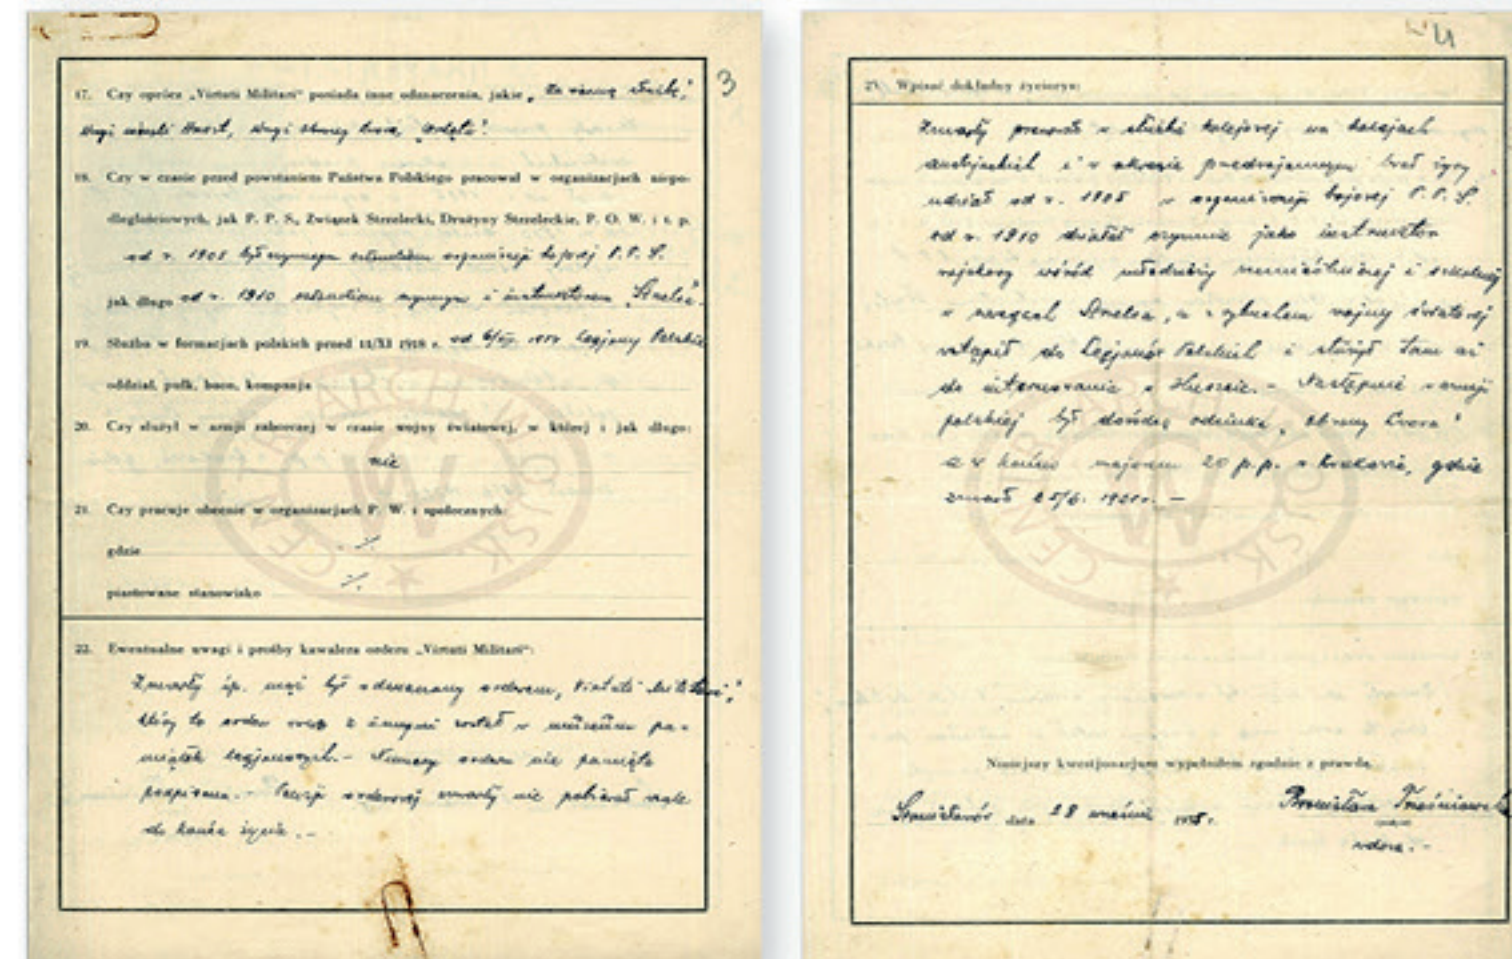 3
17. Czy oprócz „Virtuti Militari” posiada inne odznaczenia, jakie „Za wierną służbę”,
Krzyż Obrony Lwowa, „Orlęta”.
18. Czy w czasie przed powstaniem Państwa Polskiego pracował w organizacjach niepo-
dległościowych, jak P. P. S., Związek Strzelecki, Drużyny Strzeleckie, P. O. W. i t. p.
od r. 1905 był czynnym członkiem organizacji bojowej P.P.S.
jak długo od r. 1910 członkiem czynnym i instruktorem „Strzelca”.
19. Służba w formacjach polskich przed 11/XI 1918 r. od 6/ 1914 Legjony Polskie
oddział, pułk, baon, kompanja
20. Czy służył w armji zaborczej w czasie wojny światowej, w której i jak długo:
nie
21. Czy pracuje obecnie w organizacjach P. W. i społecznych:
gdzie ·/.
piastowane stanowisko ·/.
22. Ewentualne uwagi i prośby kawalera orderu „Virtuti Militari”:
Zmarły śp. mąż był odznaczony orderem „Virtuti Militari”,
który to order wraz z innymi został w muzeum pa-
miątek legjonowych. – Numeru orderu nie pamięta
podpisana. – Pensji orderowej zmarły nie pobierał wcale
do końca życia. –
CENTR. ARCH. WOJSK.
4
23. Wpisać dokładny życiorys:
Zmarły pracował w służbie kolejowej na kolejach
austrjackich i w okresie przedwojennym brał żywy
udział od r. 1905 w organizacji bojowej P.P.S.
od r. 1910 działał czynnie jako instruktor
wojskowy wśród młodzieży rzemieślniczej i szkolnej
w Strzelca, a z wybuchem wojny światowej
wstąpił do Legjonów Polskich i służył tam aż
do internowania w Huszcie. – Następnie w armji
polskiej był dowódcą odcinka „Obrony Lwowa”
a w końcu majorem 20 p.p. w Krakowie, gdzie
zmarł 25/6. 1921 r. –
CENTR. ARCH. WOJSK.
Niniejszy kwestjonarjusz wypełniłem zgodnie z prawdą.
Stanisławów data 28 wrzesień r. Bronisława
wdowa. –